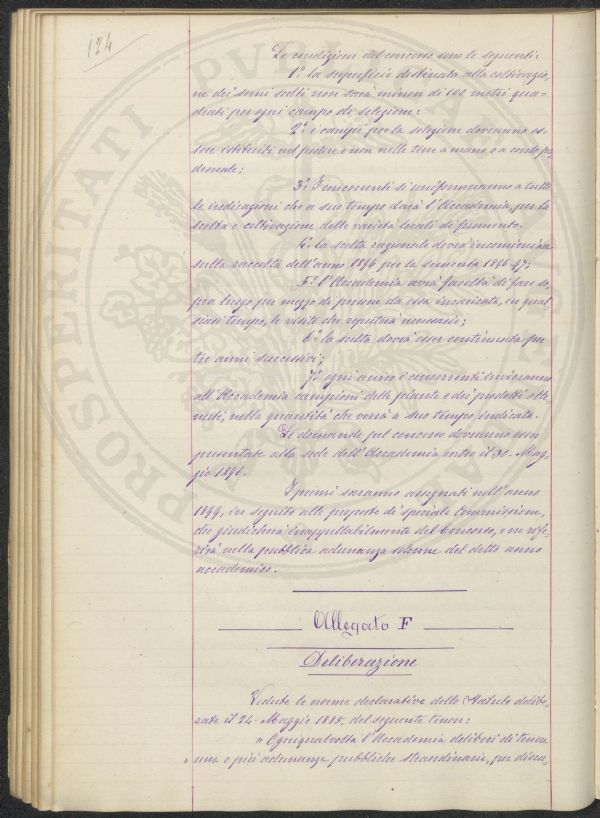 124
Le condizioni del concorso sono le seguenti:
1.° la superficie destinata alla coltivazio-
ne dei semi scelti non sarà minore di 100 metri qua-
drati per ogni campo di selezione:
2.° i campi per la selezione dovranno es-
sere istituiti nel podere e non nelle terre a mano o a conto pa-
dronale;
3.° I concorrenti si uniformeranno a tutte
le indicazioni che a suo tempo darà l'Accademia, per la
scelta e coltivazione delle varietà locali di frumento.
4.° la scelta razionale dovrà incominciare
sulla raccolta dell'anno 1896 per la sementa 1896-97;
5.° l'Accademia avrà facoltà di fare so-
pra luogo per mezzo di persone da essa incaricate, in qual-
siasi tempo, le visite che reputerà necessarie;
6.° la scelta dovrà esser continuata per
tre anni successivi;
7.° ogni anno i concorrenti invieranno
all'Accademia campioni delle piante e dei prodotti otte-
nuti, nella quantità che verrà a suo tempo indicata.
Le domande pel concorso dovranno esser
presentate alla sede dell'Accademia entro il 30. Mag-
gio 1896.
I premi saranno assegnati nell'anno
1899, in seguito alle proposte di speciale Commissione,
che giudicherà inappellabilmente del Concorso, e ne rife-
rirà nella pubblica adunanza solenne del detto anno
accademico.
Allegato F
Deliberazione
Vedute le norme declarative dello Statuto delibe-
rate il 24. Maggio 1885, del seguente tenore:
" Ogniqualvolta l'Accademia deliberi di tenere
" una o più adunanze pubbliche straordinarie, per discu-
PROSPERITATI PVBLICAE AVGENDAE